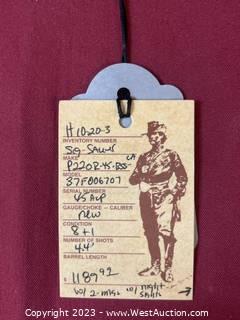 H10-20-3
INVENTORY NUMBER
Sig-Sauer
MAKE
P220R-45-BSS-CA
MODEL
37F006707
SERIAL NUMBER
45 ACP
GAUGE/CHOKE – CALIBER
new
CONDITION
8+1
NUMBER OF SHOTS
4.4"
BARREL LENGTH
$ 1189.92
w/ 2-mags w/ night sights
Copyright 2023 - WestAuction.com